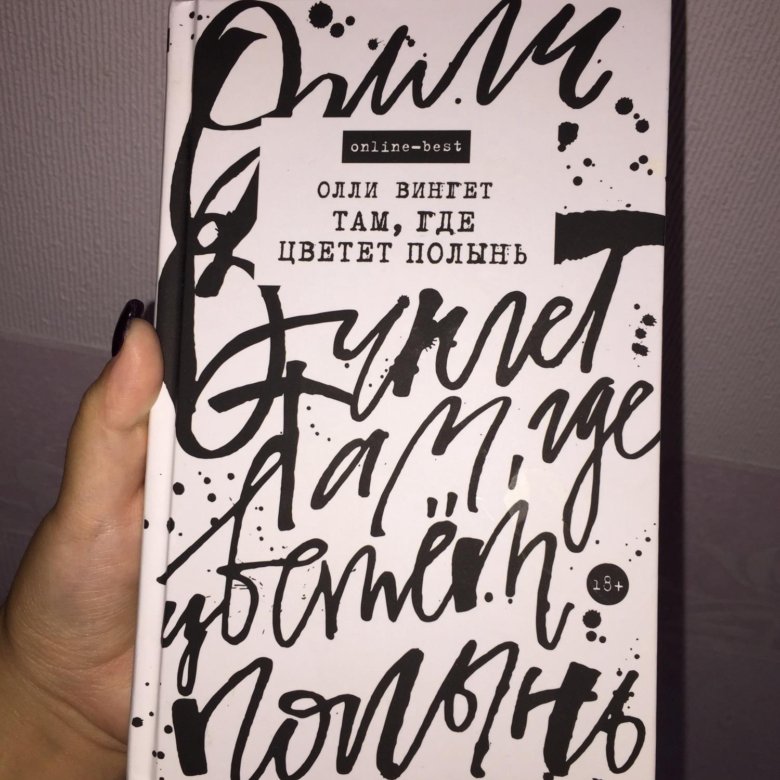 Олли
online-best
ОЛЛИ ВИНГЕТ
ТАМ, ГДЕ
ЦВЕТЕТ ПОЛЫНЬ
Вингет
там, где
цветёт
18+
полынь